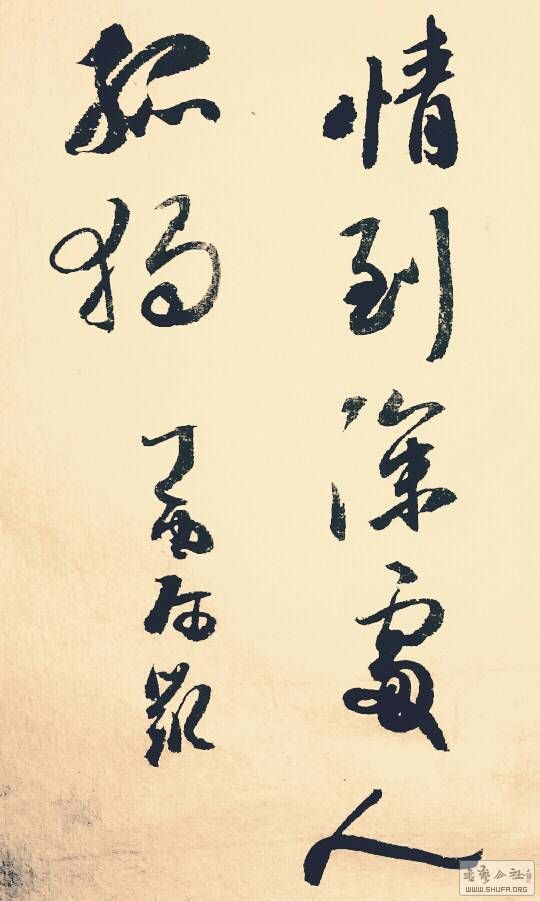 情到深處人
孤獨
丁酉
書藝公社
WWW.SHUFA.ORG